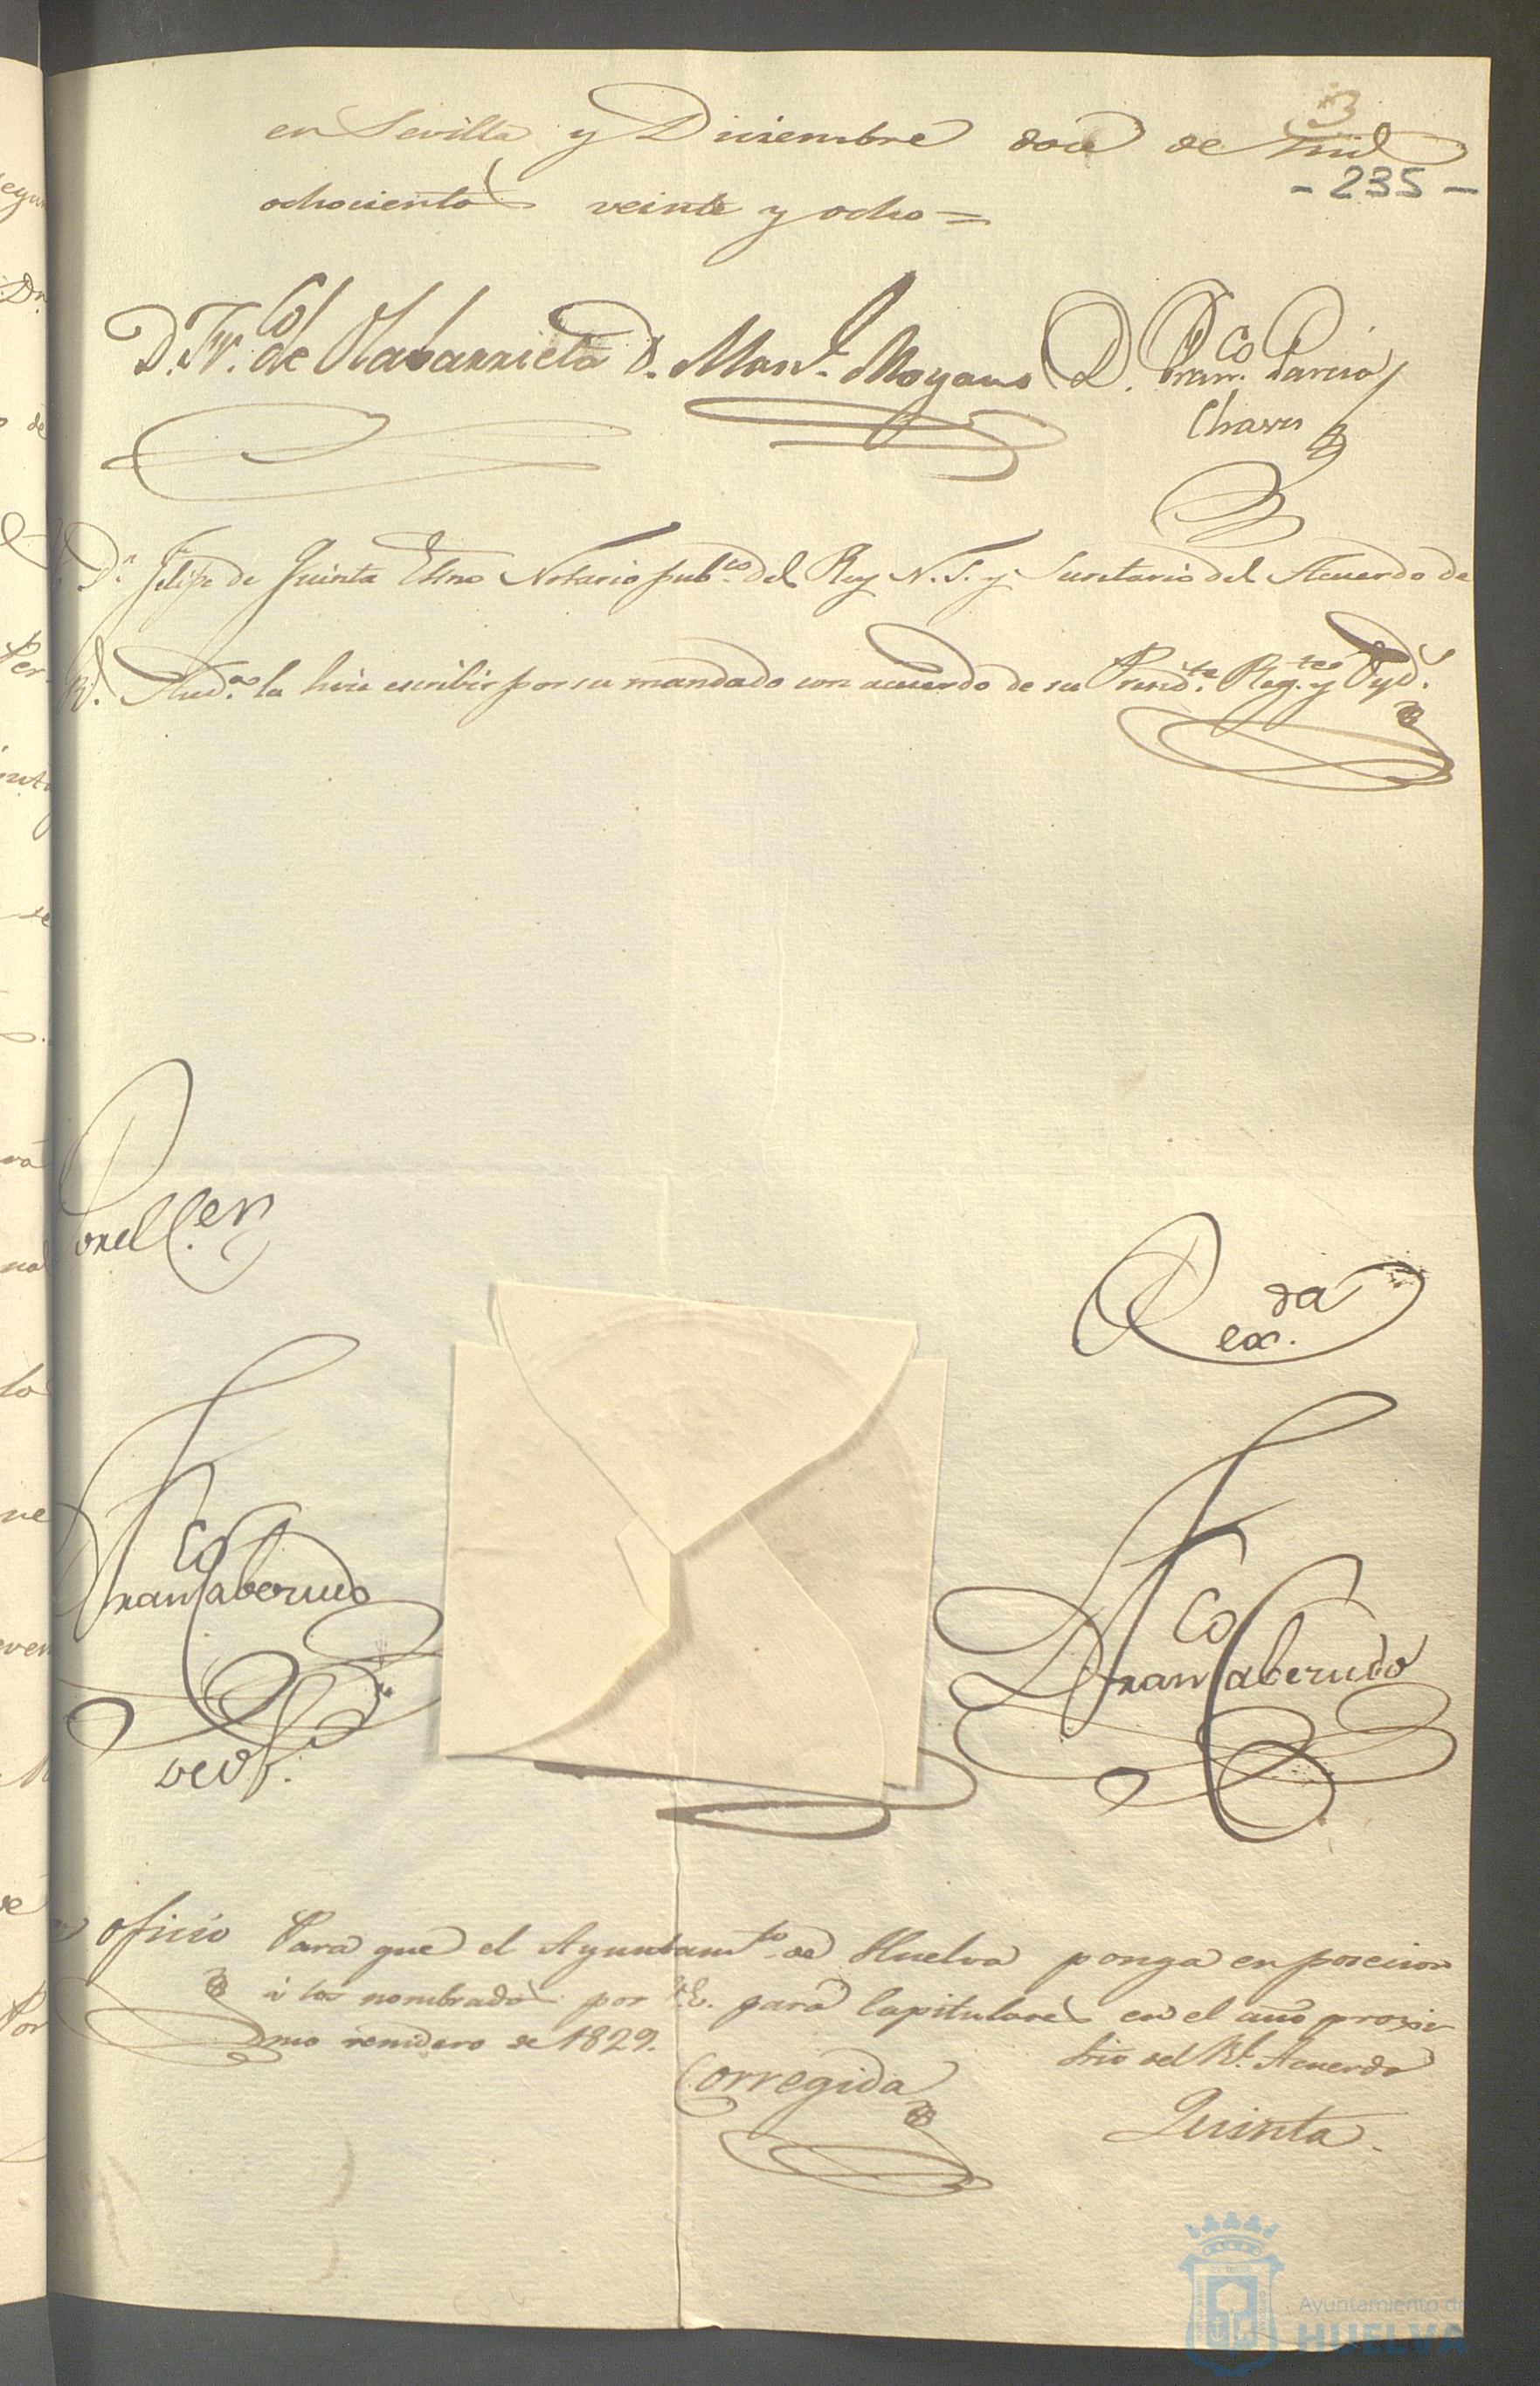 3
en Sevilla y Diciembre doce de mil
- 235 -
ochocientos veinte y ocho =
D. Fr.co de Olabarrieta D. Man.l Moyano D. Fran.co Garcia
Chaves
D.n Felipe de Quinta Esno Notario pub.co del Rey N. S. y Secretario del Acuerdo de
R.l Aud.a la hice escribir por su mandado con acuerdo de su Presid.te Reg.te y Oyd.s
da
Fran.co Caberudo
Fran.co Caberudo
oficio Para que el Ayuntam.to de Huelva ponga en posecion
á los nombrados por V.E. para Capitulares en el año proxi
mo venidero de 1829.
Srio del R.l Acuerdo
Corregida
Quinta
Ayuntamiento de
HUELVA